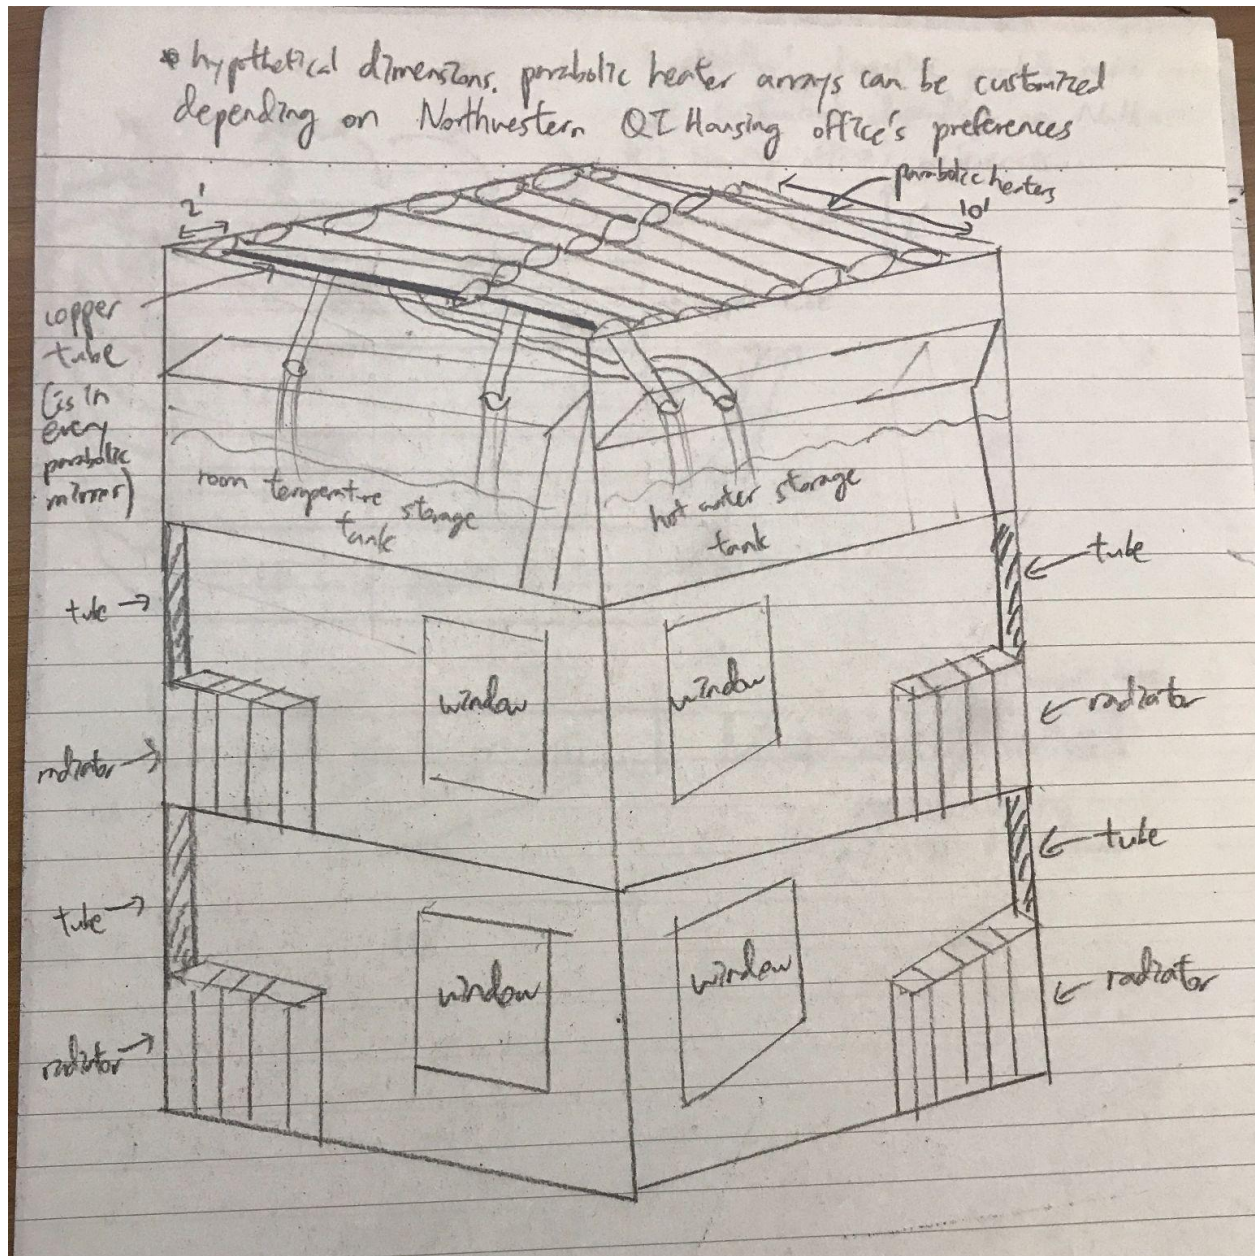 * hypothetical dimensions. parabolic heater arrays can be customized
depending on Northwestern QI Housing office's preferences
parabolic heaters
2'
10'
copper
tube
(is in
every
parabolic
mirror)
room temperature
storage
tank
hot water storage
tank
tube
tube
window
window
radiator
radiator
tube
tube
window
window
radiator
radiator